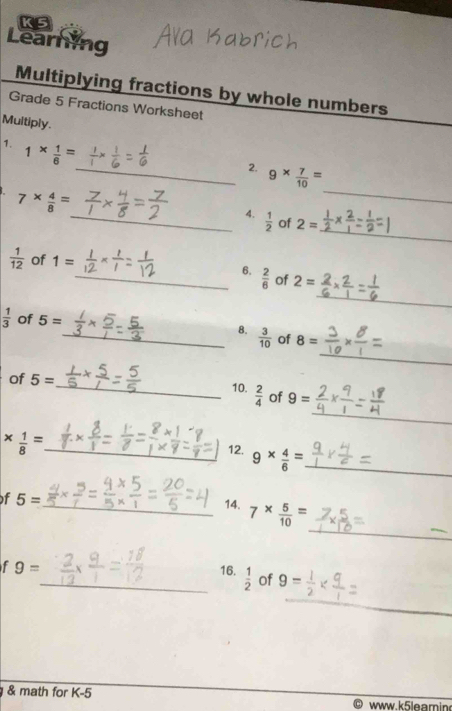 K5 Learning
Ava Kabrich
Multiplying fractions by whole numbers
Grade 5 Fractions Worksheet
Multiply.
1. 1 × 1/6 = 1/1 × 1/6 = 1/6
2. 9 × 7/10 =
. 7 × 4/8 = 7/1 × 4/8 = 7/2
4. 1/2 of 2 = 1/2 × 2/1 = 1/2 = 1
1/12 of 1 = 1/12 × 1/1 = 1/12
6. 2/6 of 2 = 2/6 × 2/1 = 1/6
1/3 of 5 = 1/3 × 5/1 = 5/3
8. 3/10 of 8 = 3/10 × 8/1 =
of 5 = 1/5 × 5/1 = 5/5
10. 2/4 of 9 = 2/4 × 9/1 = 18/4
× 1/8 =
12. 9 × 4/6 = 9/1 ×
of 5 = 4/5 × 5/1 = 4×5/5×1 = 20/5 = 4
14. 7 × 5/10 = 7/1 × 5/10 =
f 9 = 2/12 × 9/1 = 18/12
16. 1/2 of 9 = 1/2 × 9/1 =
& math for K-5
© www.k5learning